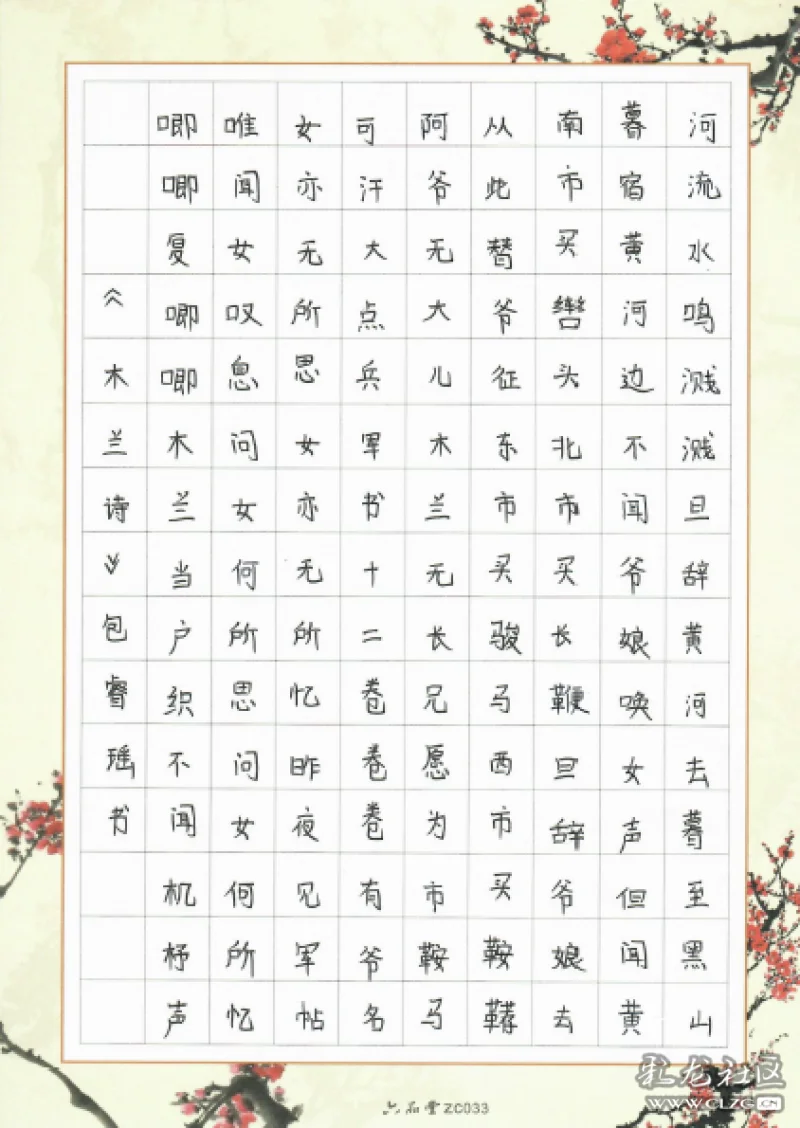 《木兰诗》包睿瑶书
唧唧复唧唧木兰当户织不闻机杼声
唯闻女叹息问女何所思问女何所忆
女亦无所思女亦无所忆昨夜见军帖
可汗大点兵军书十二卷卷卷有爷名
阿爷无大儿木兰无长兄愿为市鞍马
从此替爷征东市买骏马西市买鞍鞯
南市买辔头北市买长鞭旦辞爷娘去
暮宿黄河边不闻爷娘唤女声但闻黄
河流水鸣溅溅旦辞黄河去暮至黑山
六品堂 ZC033
彩龙社区
WWW.CLZG.CN